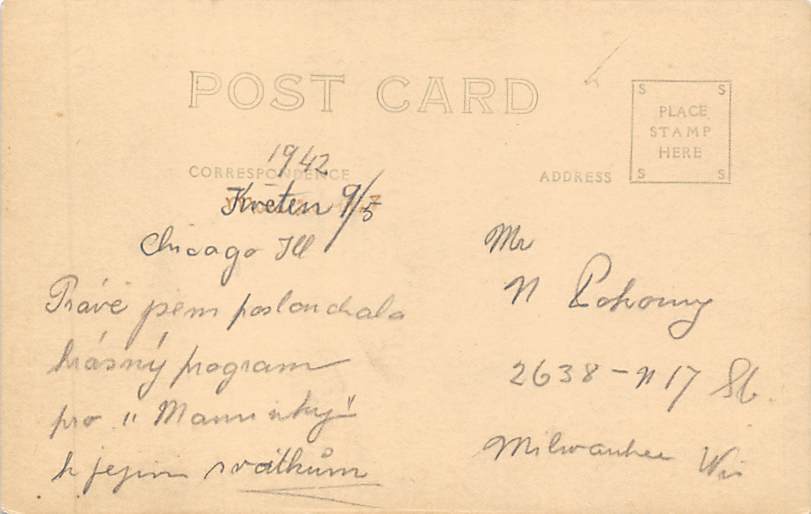 POST CARD
S S
PLACE
STAMP
HERE
S S
1942
CORRESPONDENCE
ADDRESS
Květen 9/5
Chicago Ill
Právě jsem poslouchala
krásný program
pro "Maminky"
k jejim svátkům
Mr
N Pokorny
2638 - N 17 St.
Milwaukee Wis